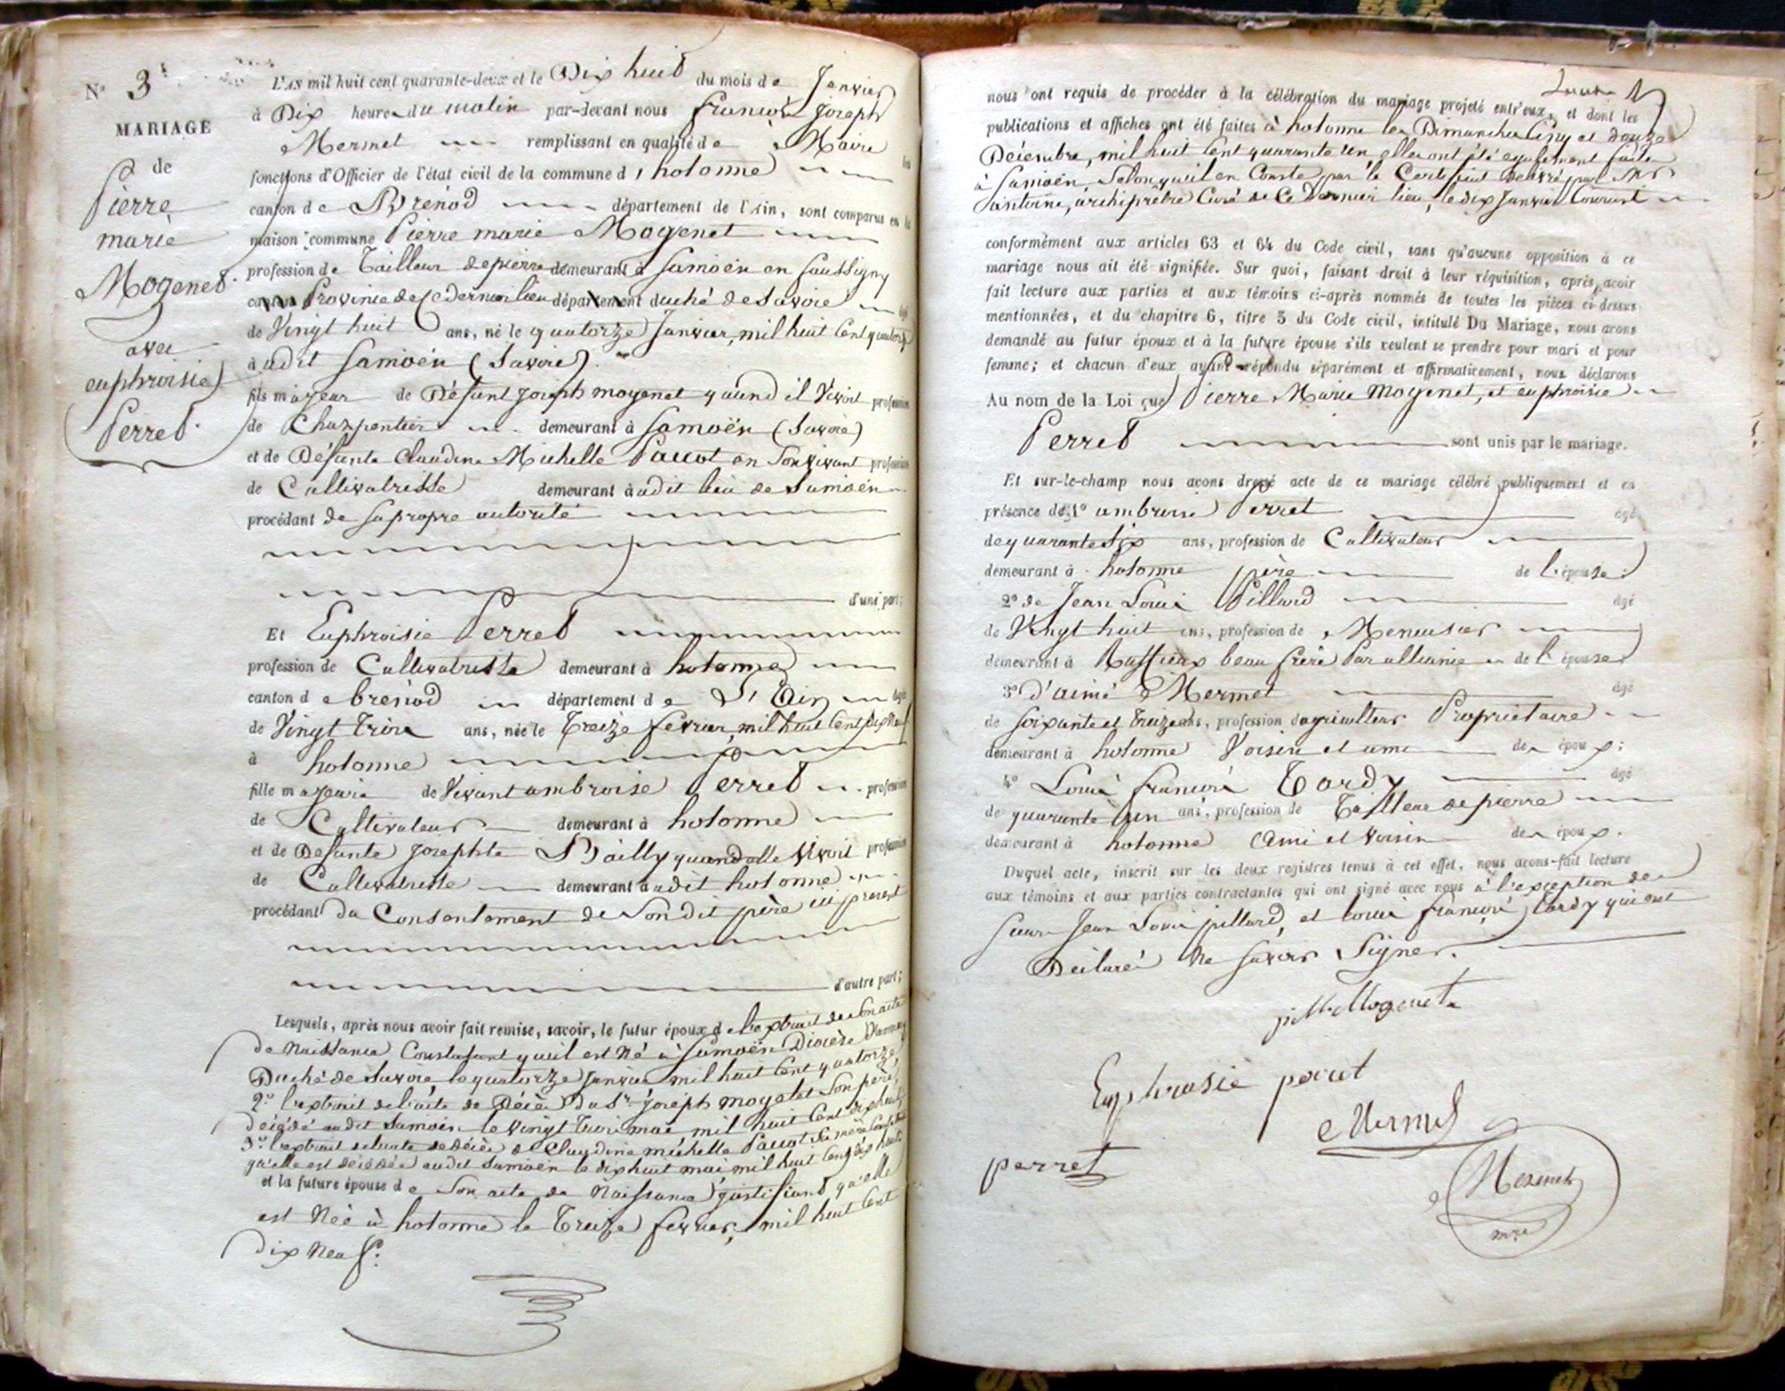 N° 3
MARIAGE
de
Pierre
marie
Mogenet
avec
euphroisie
Perret.
L'AN mil huit cent quarante-deux et le Dix huit du mois de Janvier
à Dix heures du matin par-devant nous françois Joseph
Mermet remplissant en qualité de Maire les
fonctions d'Officier de l'état civil de la commune d'hotonne
canton de Brénod département de l'Ain, sont comparus en la
maison commune Pierre marie Mogenet
profession de Tailleur de pierre demeurant à Samoën en faussigny
canton Province de ce dernier lieu département duché de Savoie âgé
de Vingt huit ans, né le quatorze Janvier, mil huit Cent quatorze
à audit Samoën (Savoie)
fils majeur de Défunt Joseph mogenet quand il Vivoit profession
de Charpentier demeurant à Samoën (Savoie)
et de Défunte Claudine Michelle Paccot en Son vivant profession
de Cultivatrisse demeurant à audit lieu de Samoën
procédant de sa propre autorité
d'une part;
Et Euphroisie Perret
profession de Cultivatrisse demeurant à hotonne
canton de brénod département de L'Ain âgée
de Vingt trois ans, née le Treize fevrier, mil huit Cent dix Neuf
à hotonne
fille majeure de Vivant ambroise Perret profession
de Cultivateur demeurant à hotonne
et de Défunte Josephte Bailly quand elle Vivoit profession
de Cultivatrisse demeurant à audit hotonne
procédant du Consentement de Son dit père ici présent
d'autre part;
Lesquels, après nous avoir fait remise, savoir, le futur époux de l'extrait de Son acte
de Naissance Constatant qu'il est Né à Samoën Diocèse d'annecy
Duché de Savoie le quatorze Janvier mil huit Cent quatorze,
2° l'extrait de l'acte de Décès du Sr Joseph mogenet Son père,
décédé audit Samoën le vingt trois mai mil huit Cent dix huit
3° l'extrait de l'acte de Décès de Claudine michelle Paccot Sa mère
qu'elle est décédée audit Samoën le dix huit mai mil huit Cent dix huit
et la future épouse de Son acte de Naissance justifiant qu'elle
est Née à hotonne le Treize fevrier, mil huit Cent
dix Neuf.
nous ont requis de procéder à la célébration du mariage projeté entr'eux, et dont les
publications et affiches ont été faites à hotonne les Dimanches Cinq et douze
Décembre, mil huit Cent quarante un, elles ont été egalement faites
à Samoën Selon qu'il en Conste par le Certificat délivré par Mr
antoine, archiprêtre Curé de Ce Dernier lieu, le dix Janvier Courant
conformément aux articles 63 et 64 du Code civil, sans qu'aucune opposition à ce
mariage nous ait été signifiée. Sur quoi, faisant droit à leur réquisition, après avoir
fait lecture aux parties et aux témoins ci-après nommés de toutes les pièces ci-dessus
mentionnées, et du chapitre 6, titre 5 du Code civil, intitulé Du Mariage, nous avons
demandé au futur époux et à la future épouse s'ils veulent se prendre pour mari et pour
femme; et chacun d'eux ayant répondu séparément et affirmativement, nous déclarons
Au nom de la Loi que Pierre Marie Mogenet, et euphroisie
Perret sont unis par le mariage.
Et sur-le-champ nous avons dressé acte de ce mariage célébré publiquement et en
présence de 1° ambroise Perret âgé
de quarante Six ans, profession de Cultivateur
demeurant à hotonne père de l'épouse;
2° de Jean Louis Pillard âgé
de Vingt huit ans, profession de Menuisier
demeurant à Ruffieux beau frère Par alliance de l'épouse
3° d'aimé Mermet âgé
de soixante et Treize ans, profession d'agriculteur Propriétaire
demeurant à hotonne Voisin et ami de époux;
4° Louis François Tardy âgé
de quarante un ans, profession de Tailleur de pierre
demeurant à hotonne ami et voisin de époux.
Duquel acte, inscrit sur les deux registres tenus à cet effet, nous avons fait lecture
aux témoins et aux parties contractantes qui ont signé avec nous à l'exception des
Sieurs Jean Louis pillard, et Louis françois Tardy qui ont
Déclaré Ne Savoir Signer.
p: M: Mogenet
Euphrasie perret
Mermet
perret
Mermet
mre